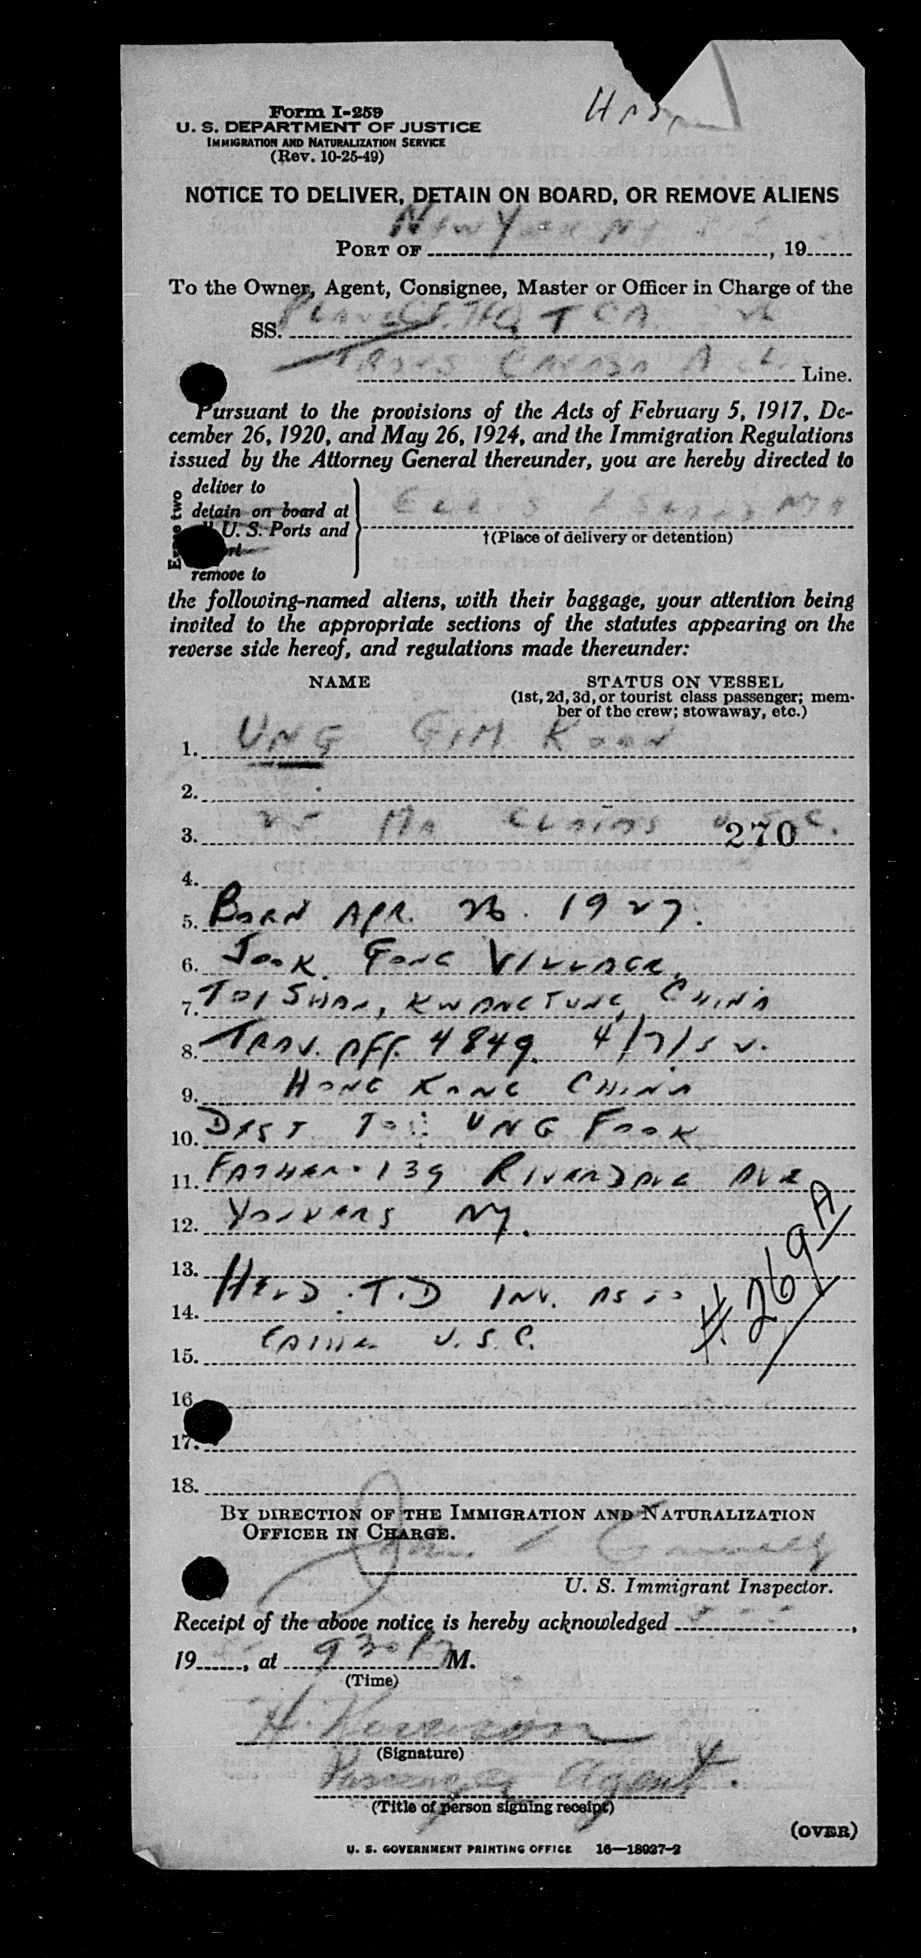 Form I-259
U. S. DEPARTMENT OF JUSTICE
IMMIGRATION AND NATURALIZATION SERVICE
(Rev. 10-25-49)
NOTICE TO DELIVER, DETAIN ON BOARD, OR REMOVE ALIENS
New York NY
PORT OF , 19
To the Owner, Agent, Consignee, Master or Officer in Charge of the
SS. Plane TCA
Trans Canada Line.
Pursuant to the provisions of the Acts of February 5, 1917, De-
cember 26, 1920, and May 26, 1924, and the Immigration Regulations
issued by the Attorney General thereunder, you are hereby directed to
deliver to
detain on board at
U. S. Ports and
remove to
two
Ellis Island
†(Place of delivery or detention)
the following-named aliens, with their baggage, your attention being
invited to the appropriate sections of the statutes appearing on the
reverse side hereof, and regulations made thereunder:
NAME STATUS ON VESSEL
(1st, 2d, 3d, or tourist class passenger; mem-
ber of the crew; stowaway, etc.)
1. UNG GIM KOON
2.
3. 25 MA CLAIMS U.S.C. 270
4.
5. BORN APR. 26. 1927.
6. JOOK FONG VILLAGE,
7. TOI SHAN, KWANGTUNG, CHINA
8. TRAV. AFF. 4849. 4/7/52.
9. HONG KONG CHINA
10. DEST TO: UNG FOOK
11. FATHER. 139 RIVERDALE AVE
12. YONKERS NY.
13.
14. HELD. T.D INV. AS TO
15. CAIM U.S.C.
#269A
16.
17.
18.
BY DIRECTION OF THE IMMIGRATION AND NATURALIZATION
OFFICER IN CHARGE.
U. S. Immigrant Inspector.
Receipt of the above notice is hereby acknowledged ,
19 , at 9 30 P M.
(Time)
H.
(Signature)
Passenger Agent.
(Title of person signing receipt)
(OVER)
U. S. GOVERNMENT PRINTING OFFICE 16—18927-2